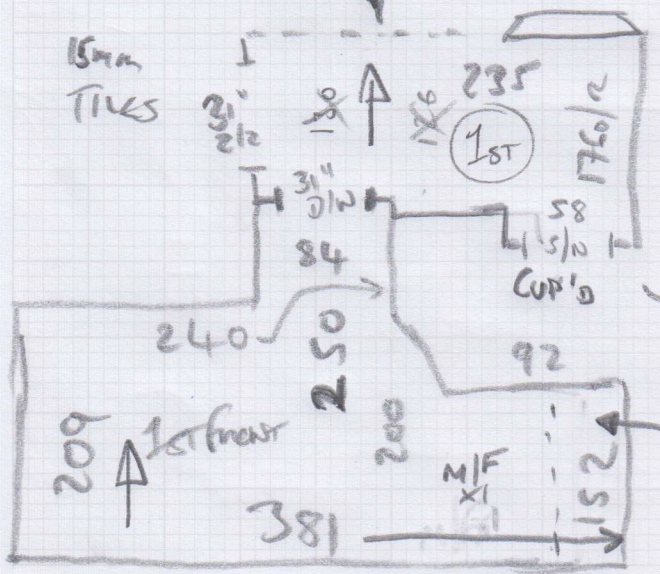 15mm
TILES
31"
235
1ST
1760/2
31"
D/W
58
S/N
CUP'D
84
240
250
92
209
1ST FRONT
200
M/F
X1
152
381